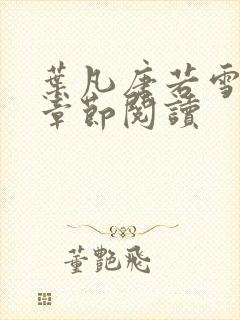 葉凡唐若雪
章節閱讀
董艷飛